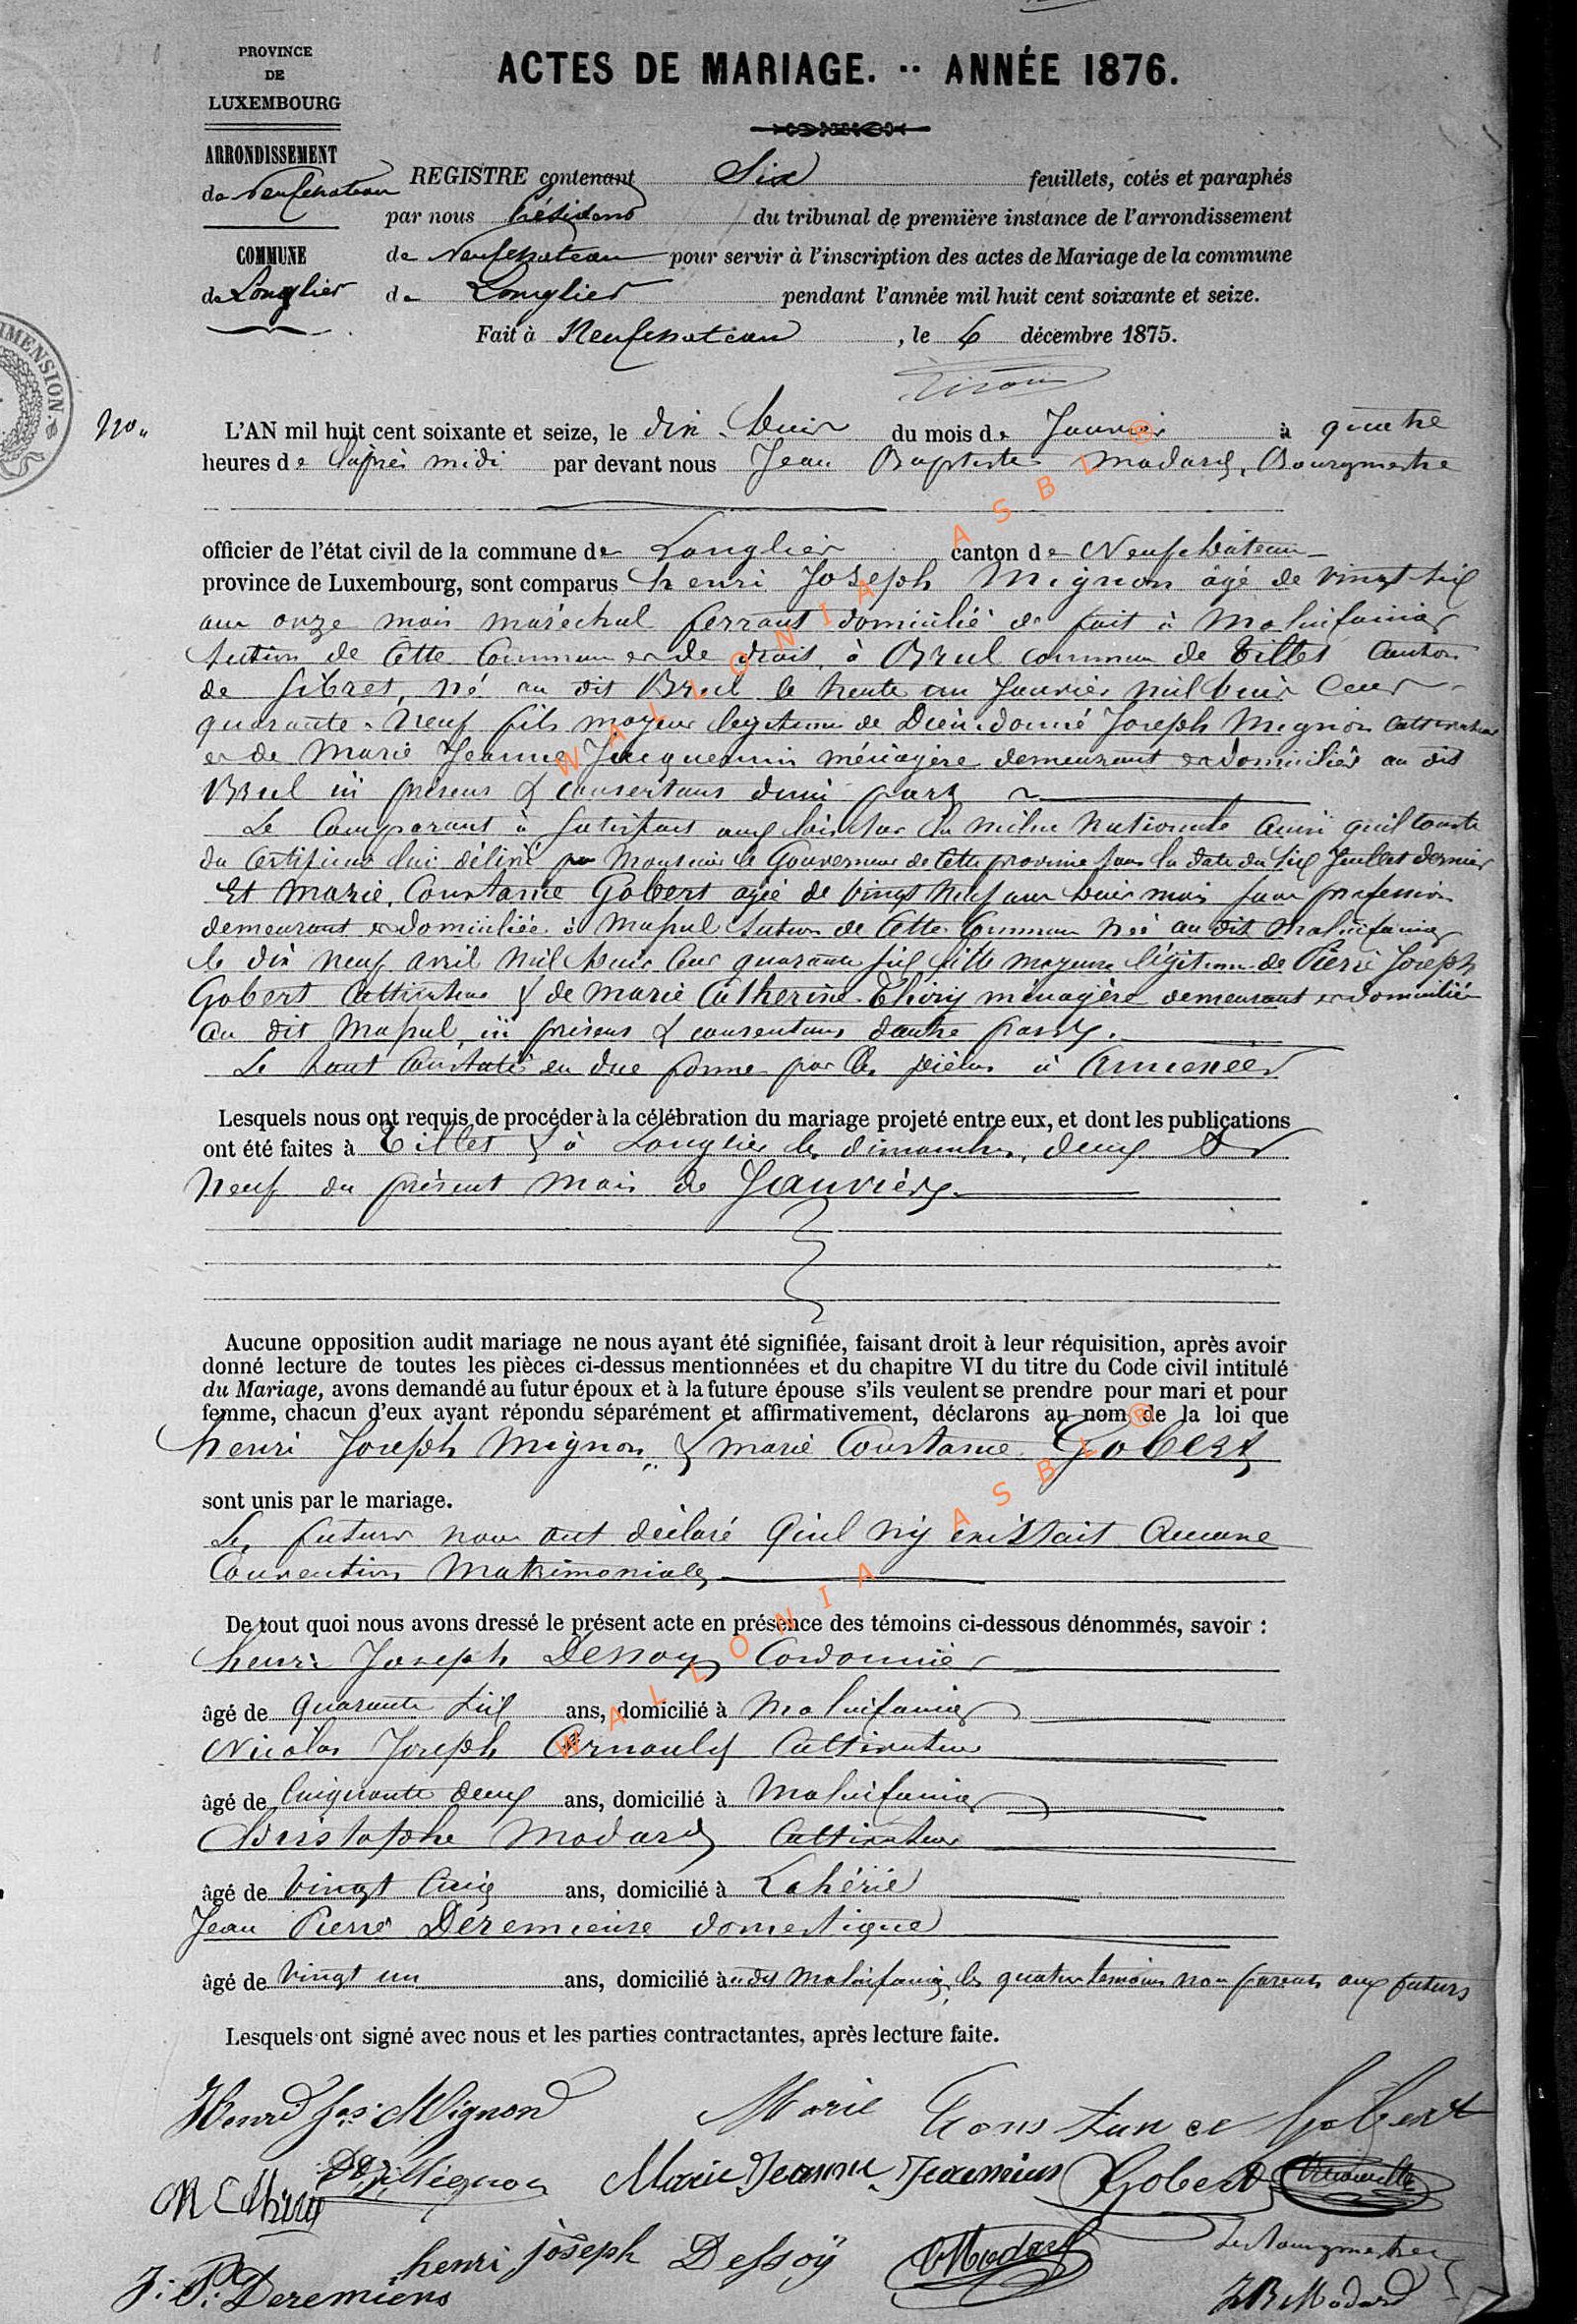 PROVINCE
DE
LUXEMBOURG
ARRONDISSEMENT
de Neufchateau
COMMUNE
de Longlier
ACTES DE MARIAGE. -- ANNÉE 1876.
REGISTRE contenant Six feuillets, cotés et paraphés
par nous Président du tribunal de première instance de l'arrondissement
de Neufchateau pour servir à l'inscription des actes de Mariage de la commune
de Longlier pendant l'année mil huit cent soixante et seize.
Fait à Neufchateau, le 6 décembre 1875.
DIMENSION.
L'AN mil huit cent soixante et seize, le dix huit du mois de Janvier à quatre
heures de l'après midi par devant nous Jean Baptiste Modard, Bourgmestre
officier de l'état civil de la commune de Longlier canton de Neufchâteau
province de Luxembourg, sont comparus henri Joseph Mignon âgé de vingt six
ans onze mois maréchal ferrant domicilié de fait à Molinfaing
section de cette commune et de droit à Breul commune de Tillet canton
de Sibret, né au dit Breul le trente un Janvier mil huit cent
quarante neuf fils majeur légitime de Dieudonné Joseph Mignon cultivateur
et de Marie Jeanne Jacquemin ménagère demeurant et domiciliés au dit
Breul ici présens & consentans d'une part
Le Comparant à satisfait aux lois sur la milice Nationale ainsi qu'il conste
du certificat lui délivré par Monsieur le Gouverneur de cette province sous la date du six Juillet dernier
Et Marie Constance Gobert agée de vingt neuf ans huit mois sans profession
demeurant et domiciliée à Mapul section de cette commune née au dit Molinfaing
le dix neuf avril mil huit cent quarante six fille majeure légitime de Pierre Joseph
Gobert cultivateur & de Marie Catherine Thiry ménagère demeurant et domiciliés
au dit Mapul, ici présens & consentans d'autre part.
Le tout constaté en due forme par les pièces ci annexées
Lesquels nous ont requis de procéder à la célébration du mariage projeté entre eux, et dont les publications
ont été faites à Tillet & à Longlier les dimanches deux &
Neuf du présent mois de Janvier
Aucune opposition audit mariage ne nous ayant été signifiée, faisant droit à leur réquisition, après avoir
donné lecture de toutes les pièces ci-dessus mentionnées et du chapitre VI du titre du Code civil intitulé
du Mariage, avons demandé au futur époux et à la future épouse s'ils veulent se prendre pour mari et pour
femme, chacun d'eux ayant répondu séparément et affirmativement, déclarons au nom de la loi que
henri Joseph Mignon & marie Constance Gobert
sont unis par le mariage.
Les futurs nous ont déclaré qu'il n'y existait aucune
Convention Matrimoniale
De tout quoi nous avons dressé le présent acte en présence des témoins ci-dessous dénommés, savoir :
henri Joseph Dessoy Cordonnier
âgé de quarante six ans, domicilié à Molinfaing
Nicolas Joseph Arnould Cultivateur
âgé de Cinquante deux ans, domicilié à Molinfaing
Christophe Modard Cultivateur
âgé de Vingt Cinq ans, domicilié à Lahérie
Jean Pierre Deremiense domestique
âgé de vingt un ans, domicilié à udit Molinfaing, les quatre témoins non parents aux futurs
Lesquels ont signé avec nous et les parties contractantes, après lecture faite.
Henri Jos: Mignon Marie Constance Gobert
Mignon Marie Jeanne Jacmin Gobert
henri joseph Dessoÿ Modard Le Bourgmestre
J: P: Deremiens JB Modard
WALLONIA ASBL ®
WALLONIA ASBL ®